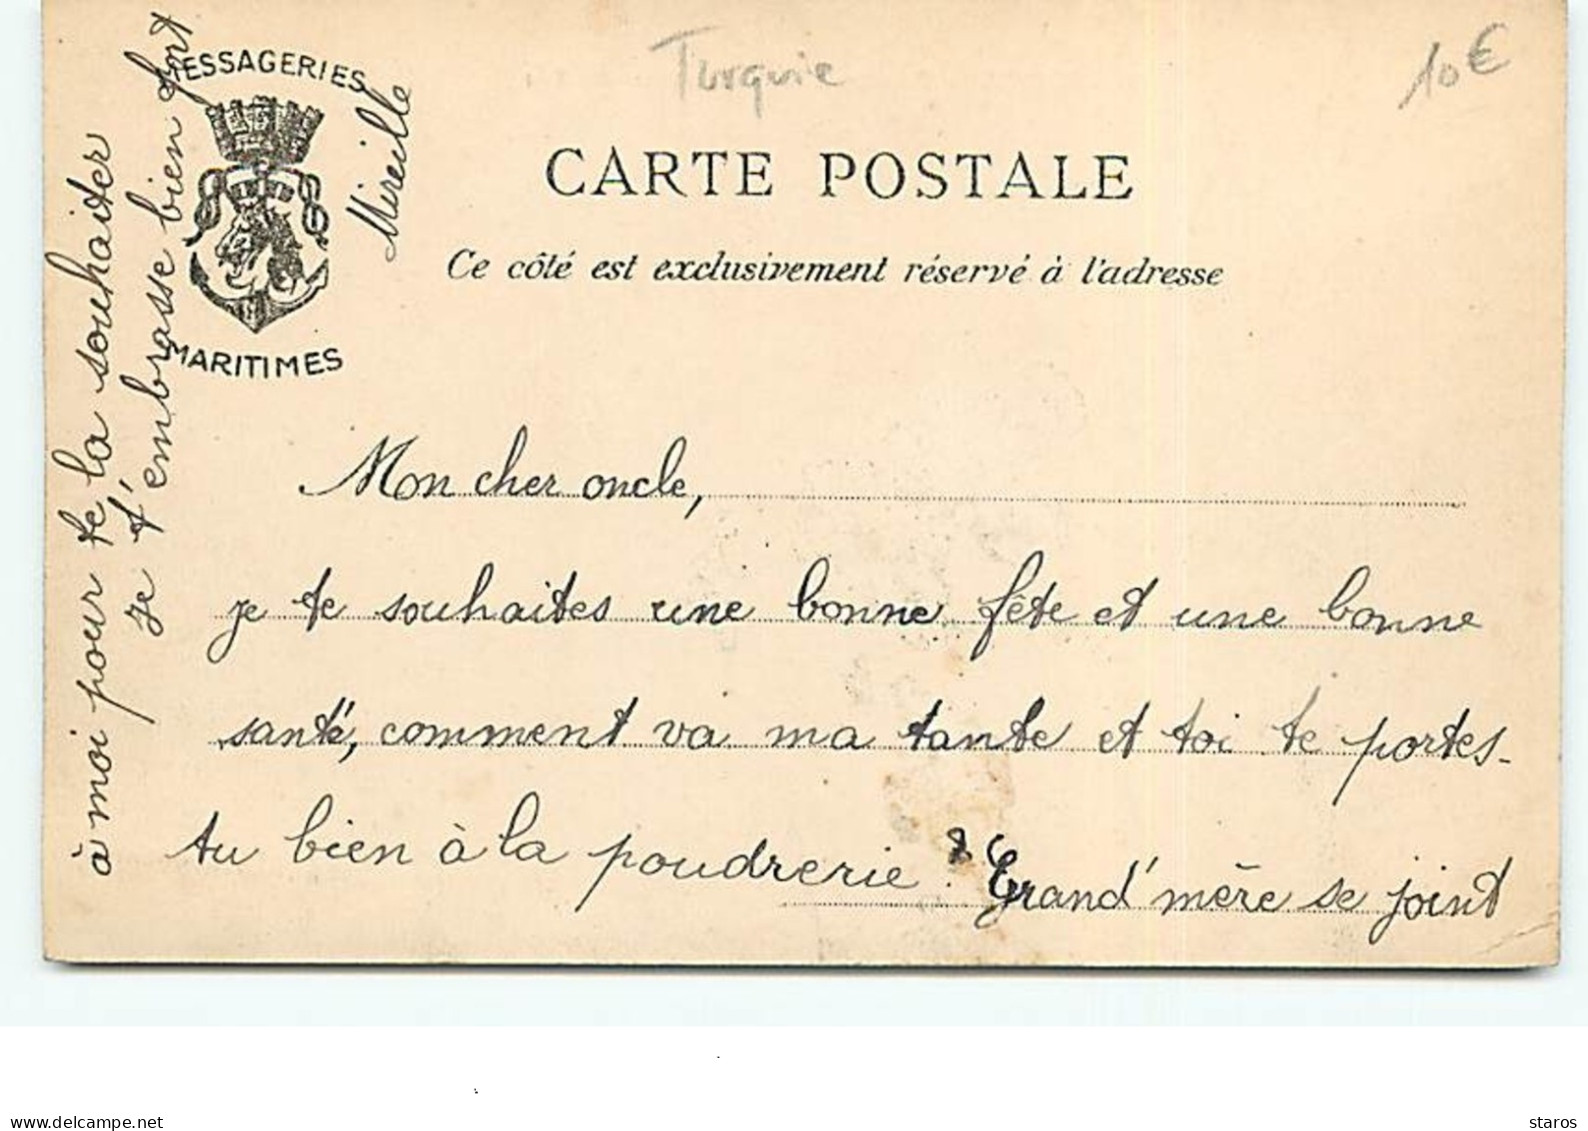 Turquie
10€
MESSAGERIES
MARITIMES
CARTE POSTALE
Ce côté est exclusivement réservé à l'adresse
Mon cher oncle,
je te souhaites une bonne fête et une bonne
santé, comment va ma tante et toi te portes-
tu bien à la poudrerie ? Grand'mère se joint
à moi pour te la souhaiter
je t'embrasse bien fort
Mireille
www.delcampe.net
staros